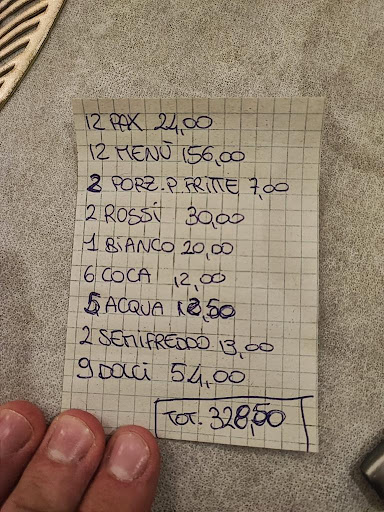 12 PAX 24,00
12 MENÙ 156,00
2 PORZ. P. FRITTE 7,00
2 ROSSI 30,00
1 BIANCO 20,00
6 COCA 12,00
5 ACQUA 12,50
2 SEMIFREDDO 13,00
9 DOLCI 54,00
TOT. 328,50